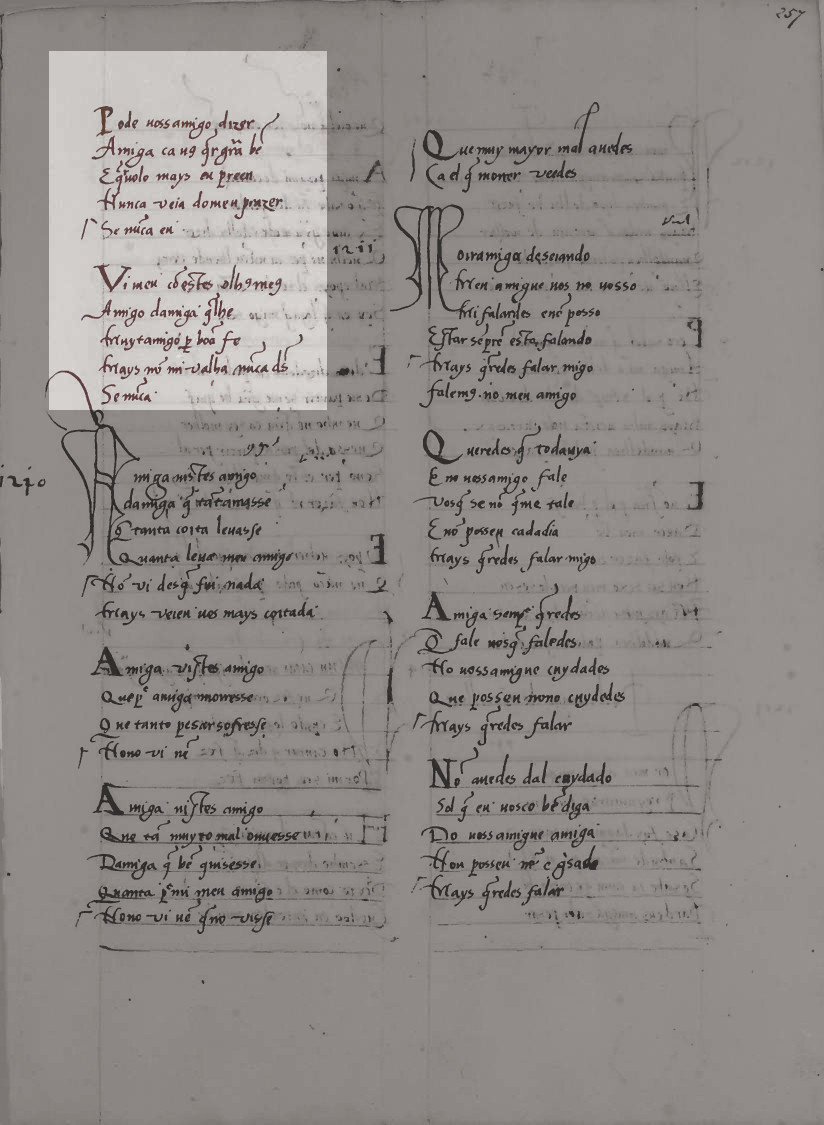 257
Pode uossamigo dizer
Amiga ca u9 q̃r grã bẽ
E q̃uolo mays eu p̃reen
Nunca veia domeu prazer
Se nũca eu
Vi meu cõ estes olh9 me9
Amigo damiga q̃lhe
Muyt amigo p̱ boã fe
Mays nõ mi valha nũca ds̃
Se nũca
1240
Amiga uistes amigo
damiga q̃ tãtamasse
Q̃ tanta coita leuasse
Quanta leua meu amigo
Nõ vi desq̃ fui nada
Mays veien uos mays coitada
Amiga vistes amigo
Que p̱ amiga moiresse
Que tanto pesar sofresse
Nono vi nẽ
Amiga uistes amigo
Que tã muyto mal ouuesse
Damiga q̃ bẽ quisesse
Quanta p̱ mi meu amigo
Nono vi nẽ q̃no visse
Que muy mayor mal auedes
Ca el q̃ morrer ueedes
Moir amiga deseiando
Meu amigue uos no uosso
Mi falardes enõ posso
Estar sepre esta falando
Mays q̃redes falar migo
falem9 no meu amigo
Queredes q̃ todauya
Eno uossamigo fale
Uosq̃ se nõ q̃me cale
E nõ posseu cadadia
Mays q̃redes falar migo
Amiga semp̱ q̃redes
Q̃ fale uosq̃ faledes
No uossamigue cuydades
Que posseu nono cuydedes
Mays q̃redes falar
Nõ auedes dal cuydado
Sol q̃ eu uosco bẽ diga
Do uossamigue amiga
Non posseu nẽ e g̃sado
Mays q̃redes falar